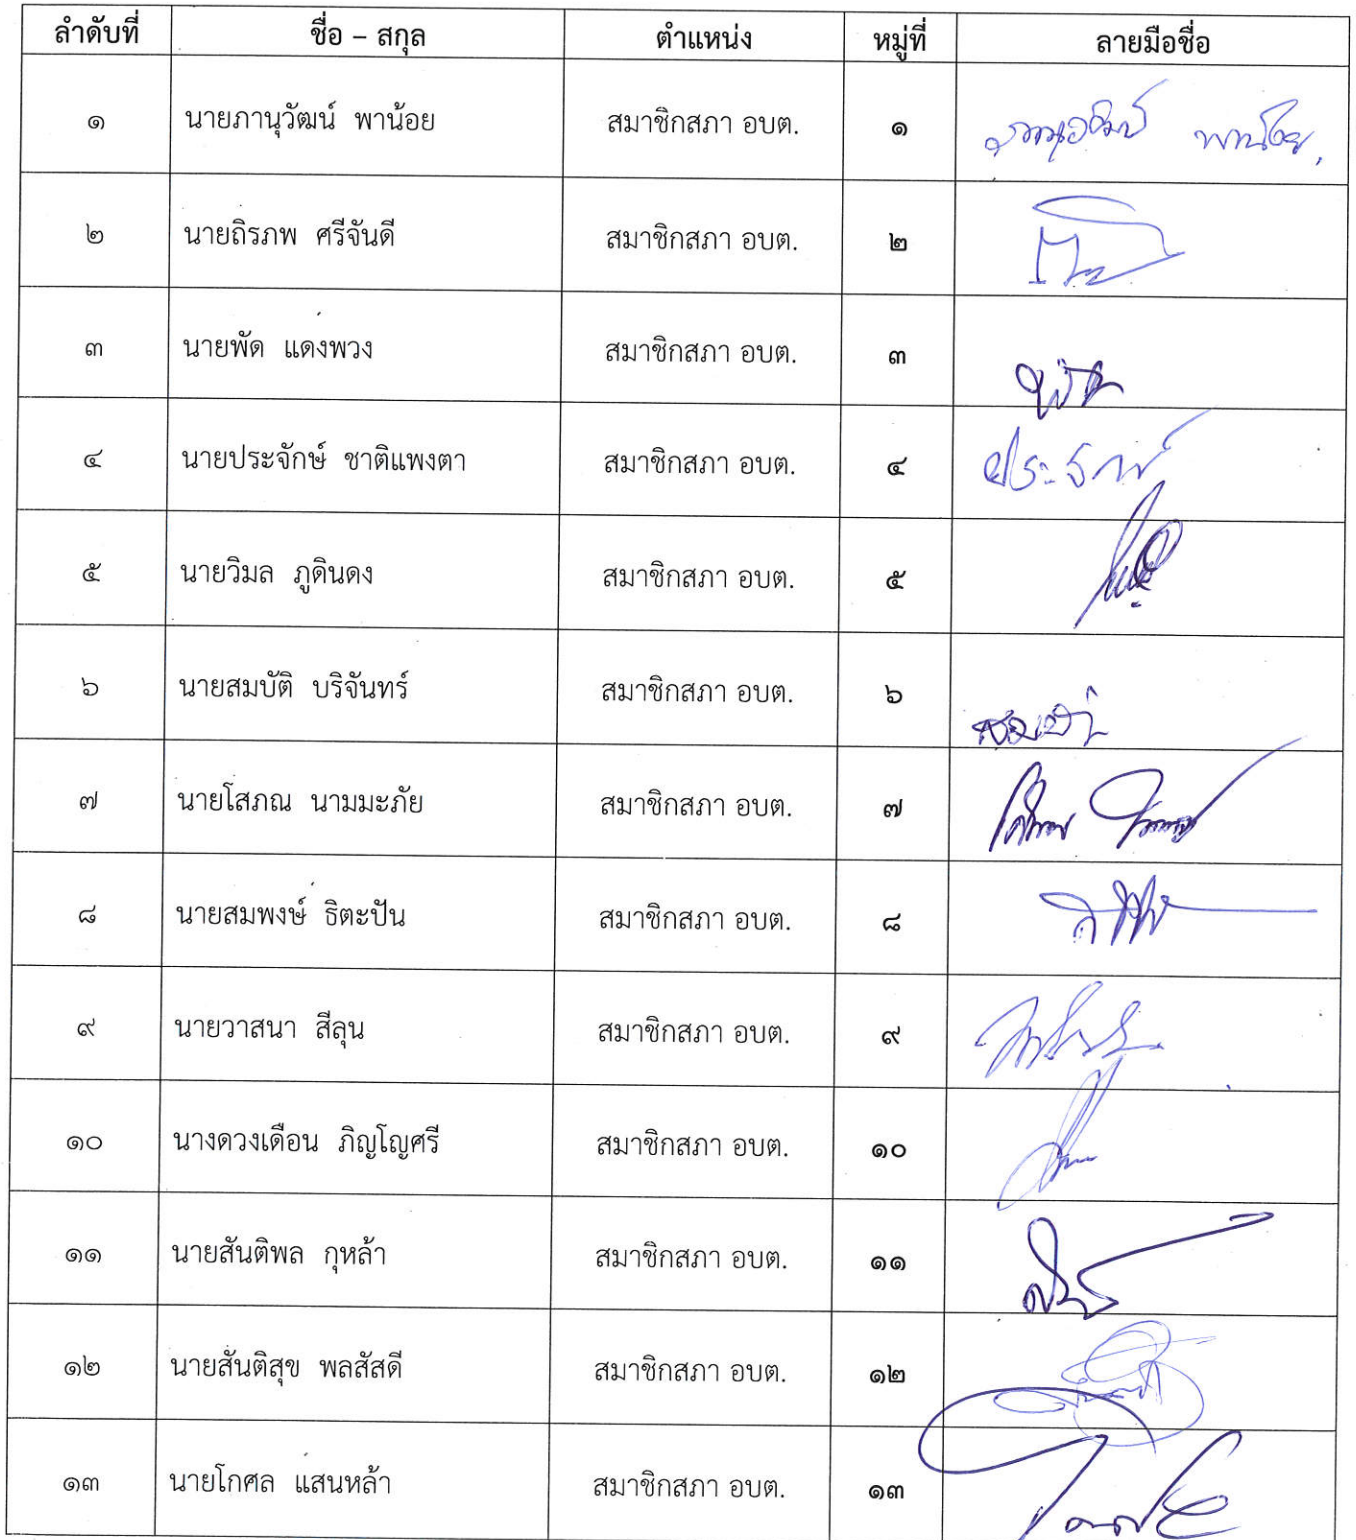 ลำดับที่ ชื่อ – สกุล ตำแหน่ง หมู่ที่ ลายมือชื่อ
๑ นายภานุวัฒน์ พาน้อย สมาชิกสภา อบต. ๑ ภานุวัฒน์ พาน้อย
๒ นายถิรภพ ศรีจันดี สมาชิกสภา อบต. ๒
๓ นายพัด แดงพวง สมาชิกสภา อบต. ๓ พัด
๔ นายประจักษ์ ชาติแพงตา สมาชิกสภา อบต. ๔ ประจักษ์
๕ นายวิมล ภูดินดง สมาชิกสภา อบต. ๕
๖ นายสมบัติ บริจันทร์ สมาชิกสภา อบต. ๖ สมบัติ
๗ นายโสภณ นามมะภัย สมาชิกสภา อบต. ๗
๘ นายสมพงษ์ ธิตะปัน สมาชิกสภา อบต. ๘
๙ นายวาสนา สีลุน สมาชิกสภา อบต. ๙
๑๐ นางดวงเดือน ภิญโญศรี สมาชิกสภา อบต. ๑๐
๑๑ นายสันติพล กุหล้า สมาชิกสภา อบต. ๑๑
๑๒ นายสันติสุข พลสัสดี สมาชิกสภา อบต. ๑๒
๑๓ นายโกศล แสนหล้า สมาชิกสภา อบต. ๑๓